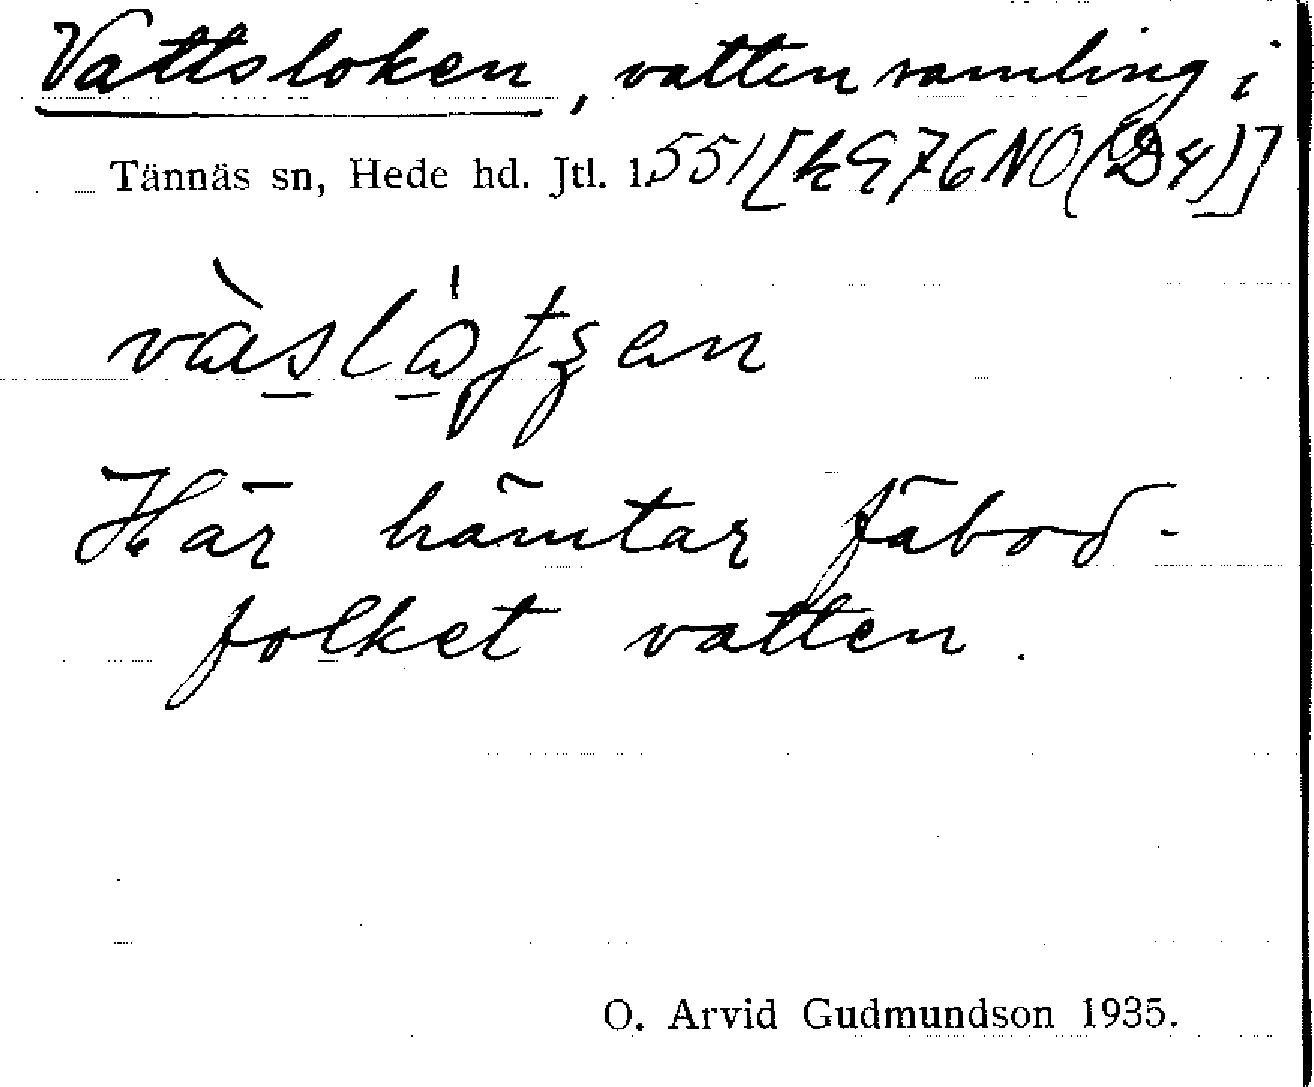 Vattsloken, vattensamling i
Tännäs sn, Hede hd. Jtl. l. 551 [k 976 NO (D4)]
Här hämtar fäbod-
folket vatten.
O. Arvid Gudmundson 1935.